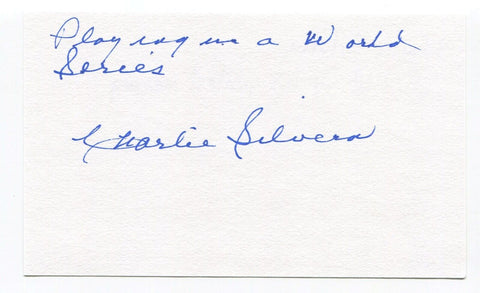 Playing in a World
Series
Charlie Silvera